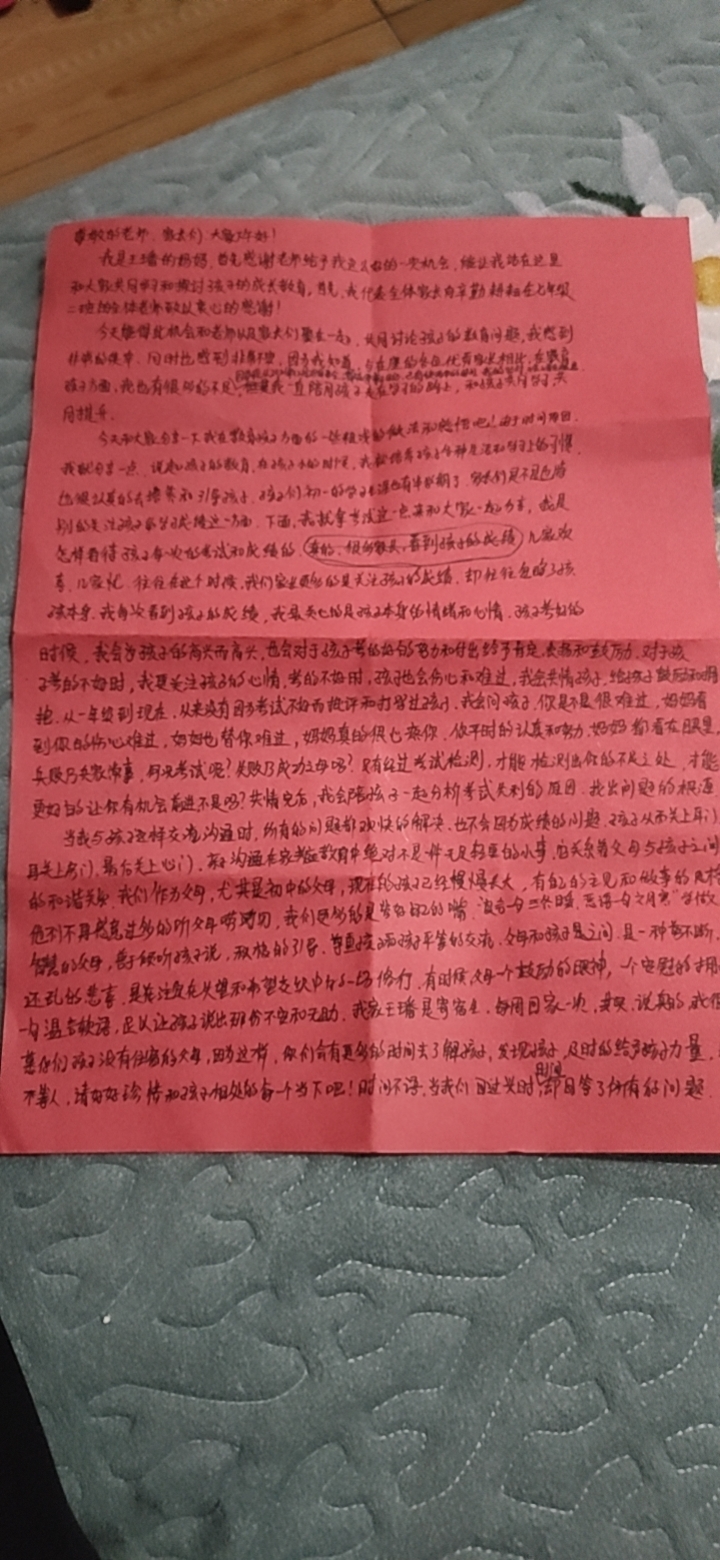 尊敬的老师、家长们,大家下午好!
我是王 的妈妈,首先感谢老师给予我这么好的一次机会,能让我站在这里
和大家共同学习和探讨孩子的成长教育,首先,我代表全体家长向辛勤耕耘在七年级
二班的全体老师致以衷心的感谢!
今天能借此机会和老师以及家长们聚在一起,共同讨论孩子的教育问题,我感到
非常的荣幸,同时也感到非常 ,因为我知道,与在座的各位优秀家长相比,在教育
孩子方面,我也有很多的不足,但是我一直陪同孩子走在学习的路上,和孩子共同学习,共
同提升。
今天和大家分享一下我在教育孩子方面的一些粗浅的做法和感悟吧!由于时间原因,
我就分享一点,说起孩子的教育,在孩子小的时候,我就培养孩子各种生活和学习上的习惯,
也很认真的去培养和引导孩子,孩子们初一的学习生涯也有半年期了,家长们是不是也特
别的关注孩子的学习成绩这一方面,下面,我就拿考试这一点来和大家一起分享,我是
怎样看待孩子每次的考试和成绩的 有的,很多家长,看到孩子的成绩 几家欢
喜,几家忧,往往在这个时候,我们家长更多的是关注孩子的成绩,却往往忽略了孩
子本身,我每次看到孩子的成绩,我最关心的是孩子本身的情绪和心情,孩子考好的
时候,我会为孩子的高兴而高兴,也会对于孩子考的好的努力和付出给予肯定、表扬和鼓励,对于孩
子考的不好时,我更关注孩子的心情,考的不好时,孩子也会伤心和难过,我会共情孩子,给孩子鼓励和拥
抱,从一年级到现在,从来没有因为考试不好而批评和打骂过孩子,我会问孩子,你是不是很难过,妈妈看
到你的伤心难过,妈妈也替你难过,妈妈真的很心疼你,你平时的认真和努力,妈妈都看在眼里,
兵家乃兵家常事,何况考试呢?失败乃成功之母吗?只有经过考试检测,才能检测出你的不足之处,才能
更好的让你有机会前进不是吗?共情完后,我会陪孩子一起分析考试失利的原因,找出问题的根源
当我与孩子这样交流沟通时,所有的问题都欢快的解决,也不会因为成绩的问题,孩子从而关上耳门,
耳关上房门,最后关上心门,亲子沟通在家庭教育中绝对不是件无足轻重的小事,它关系着父母与孩子之间
的和谐关系,我们作为父母,尤其是初中的父母,现在的孩子已经慢慢长大,有自己的主见和做事的风格
他们不再愿意过多的听父母唠唠叨叨,我们更多的是管好自己的嘴,良言一句三冬暖,恶语一句六月寒,学做
智慧的父母,善于倾听孩子说,积极的引导,尊重孩子而孩子平等的交流,父母和孩子之间,是一种剪不断,
还乱的悲喜,是关注在失望和希望交织中的一场修行,有时候,父母一个鼓励的眼神,一个安慰的拥
一句温言软语,足以让孩子说出那份不安和无助,我家王 是寄宿生,每周回家一次,其实,说真的,我很
羡慕你们孩子没有住宿的父母,因为这样,你们会有更多的时间去了解孩子,发现孩子,及时的给予孩子力量,
不等人,请好好珍惜和孩子相处的每一个当下吧!时间不语,当我们回过头时,时间却回答了所有的问题